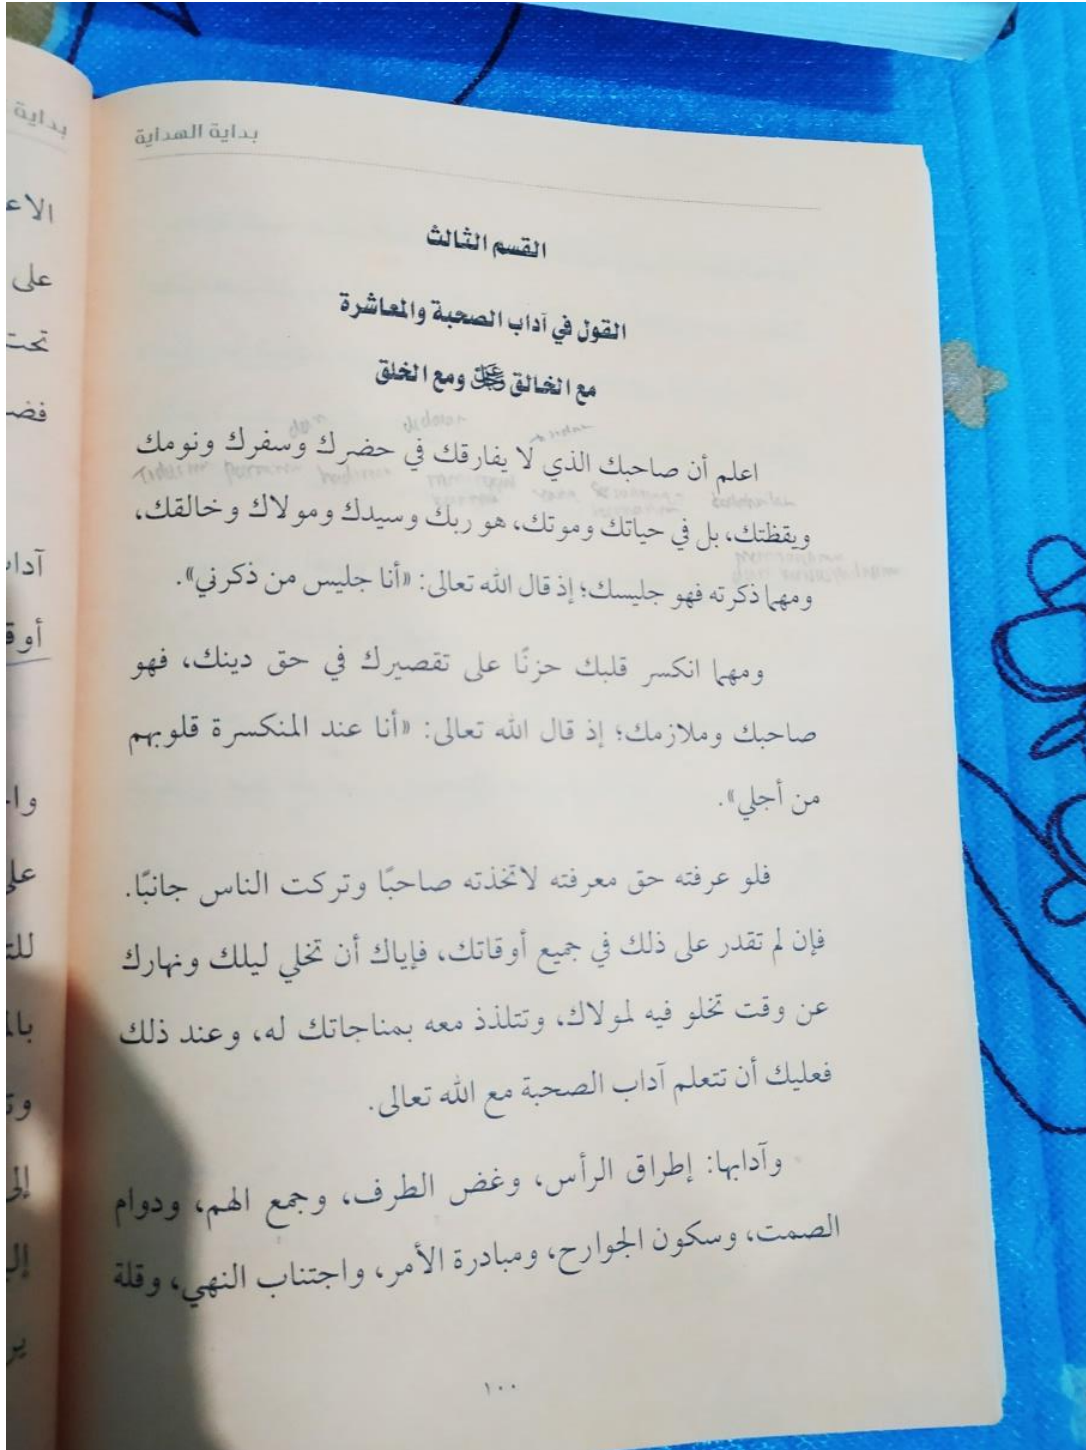 بداية الهداية
القسم الثالث
القول في آداب الصحبة والمعاشرة
مع الخالق ﷻ ومع الخلق
اعلم أن صاحبك الذي لا يفارقك في حضرك وسفرك ونومك
ويقظتك، بل في حياتك وموتك، هو ربك وسيدك ومولاك وخالقك،
ومهما ذكرته فهو جليسك؛ إذ قال الله تعالى: «أنا جليس من ذكرني».
ومهما انكسر قلبك حزنًا على تقصيرك في حق دينك، فهو
صاحبك وملازمك؛ إذ قال الله تعالى: «أنا عند المنكسرة قلوبهم
من أجلي».
فلو عرفته حق معرفته لاتخذته صاحبًا وتركت الناس جانبًا.
فإن لم تقدر على ذلك في جميع أوقاتك، فإياك أن تخلي ليلك ونهارك
عن وقت تخلو فيه لمولاك، وتتلذذ معه بمناجاتك له، وعند ذلك
فعليك أن تتعلم آداب الصحبة مع الله تعالى.
وآدابها: إطراق الرأس، وغض الطرف، وجمع الهم، ودوام
الصمت، وسكون الجوارح، ومبادرة الأمر، واجتناب النهي، وقلة
١٠٠
بداية
على